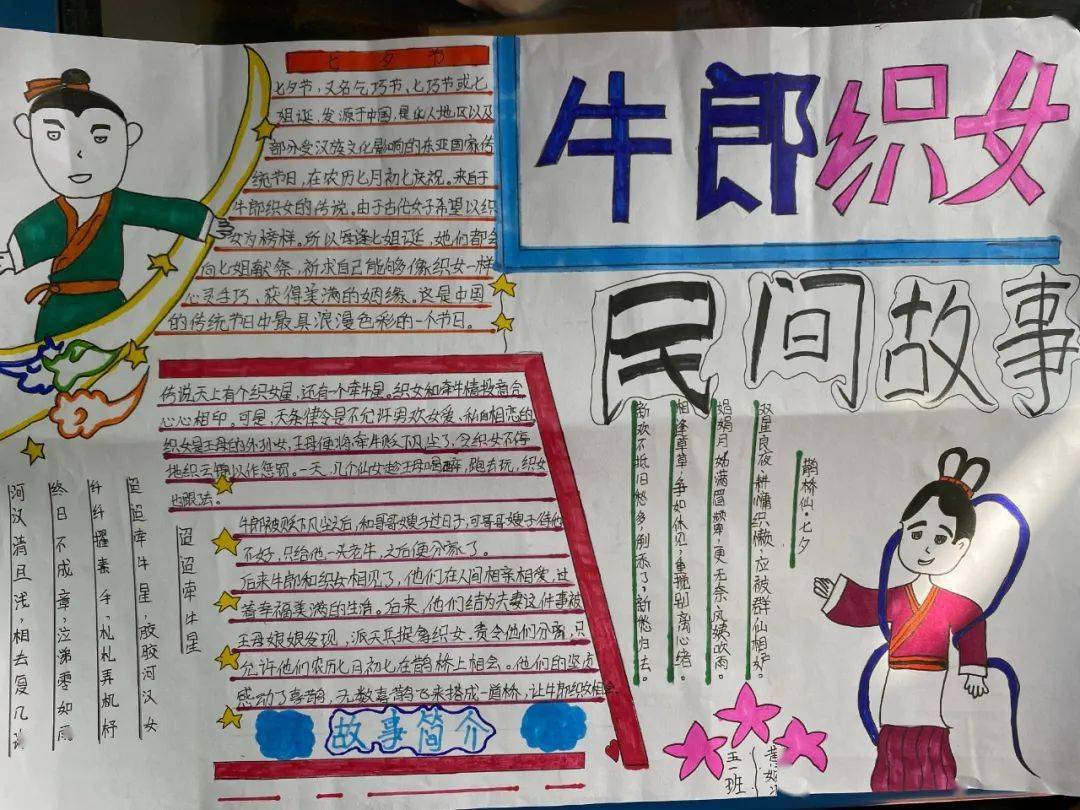 牛郎织女
民间故事
七夕节
七夕节，又名乞巧节、七巧节或七
姐诞，发源于中国，是华人地区以及
部分受汉族文化影响的东亚国家传
统节日，在农历七月初七庆祝。来自于
牛郎织女的传说。由于古代女子希望以织
女为榜样。所以每逢七姐诞，她们都会
向七姐献祭，祈求自己能够像织女一样
心灵手巧，获得美满的姻缘。这是中国
的传统节日中最具浪漫色彩的一个节日。
传说天上有个织女星，还有个牵牛星。织女和牵牛情投意合
心心相印。可是，天条律令是不允许男欢女爱、私自相恋的
织女是王母的外孙女，王母便将牵牛贬下凡尘了，令织女不停
地织云锦以作惩罚。一天，几个仙女趁王母喝醉，跑去玩，织女
也跟去。
牛郎被贬下凡尘之后，和哥哥嫂子过日子，可哥哥嫂子待他
不好，只给他一头老牛，之后便分家了。
后来牛郎和织女相见了，他们在人间相亲相爱，过
着幸福美满的生活。后来，他们结为夫妻这件事被
王母娘娘发现，派天兵捉拿织女。责令他们分离，只
允许他们农历七月初七在鹊桥上相会。他们的坚贞
感动了喜鹊，无数喜鹊飞来搭成一道桥，让牛郎织女相会
故事简介
鹊桥仙·七夕
双星良夜，耕慵织懒，应被群仙相妒。
娟娟月姊满眉颦，更无奈、风姨吹雨。
相逢草草，争如休见，重搅别离心绪。
新欢不抵旧愁多，倒添了、新愁归去。
迢迢牵牛星
迢迢牵牛星，皎皎河汉女
纤纤擢素手，札札弄机杼
终日不成章，泣涕零如雨
河汉清且浅，相去复几许
五一班